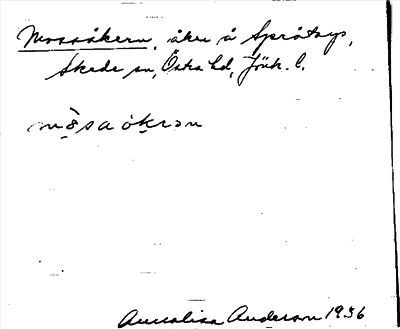 Mossåkern, åker å Språtorp,
Skede sn, Östra hd, Jönk. l.
mòsaòkran
Annalisa Anderson 1936